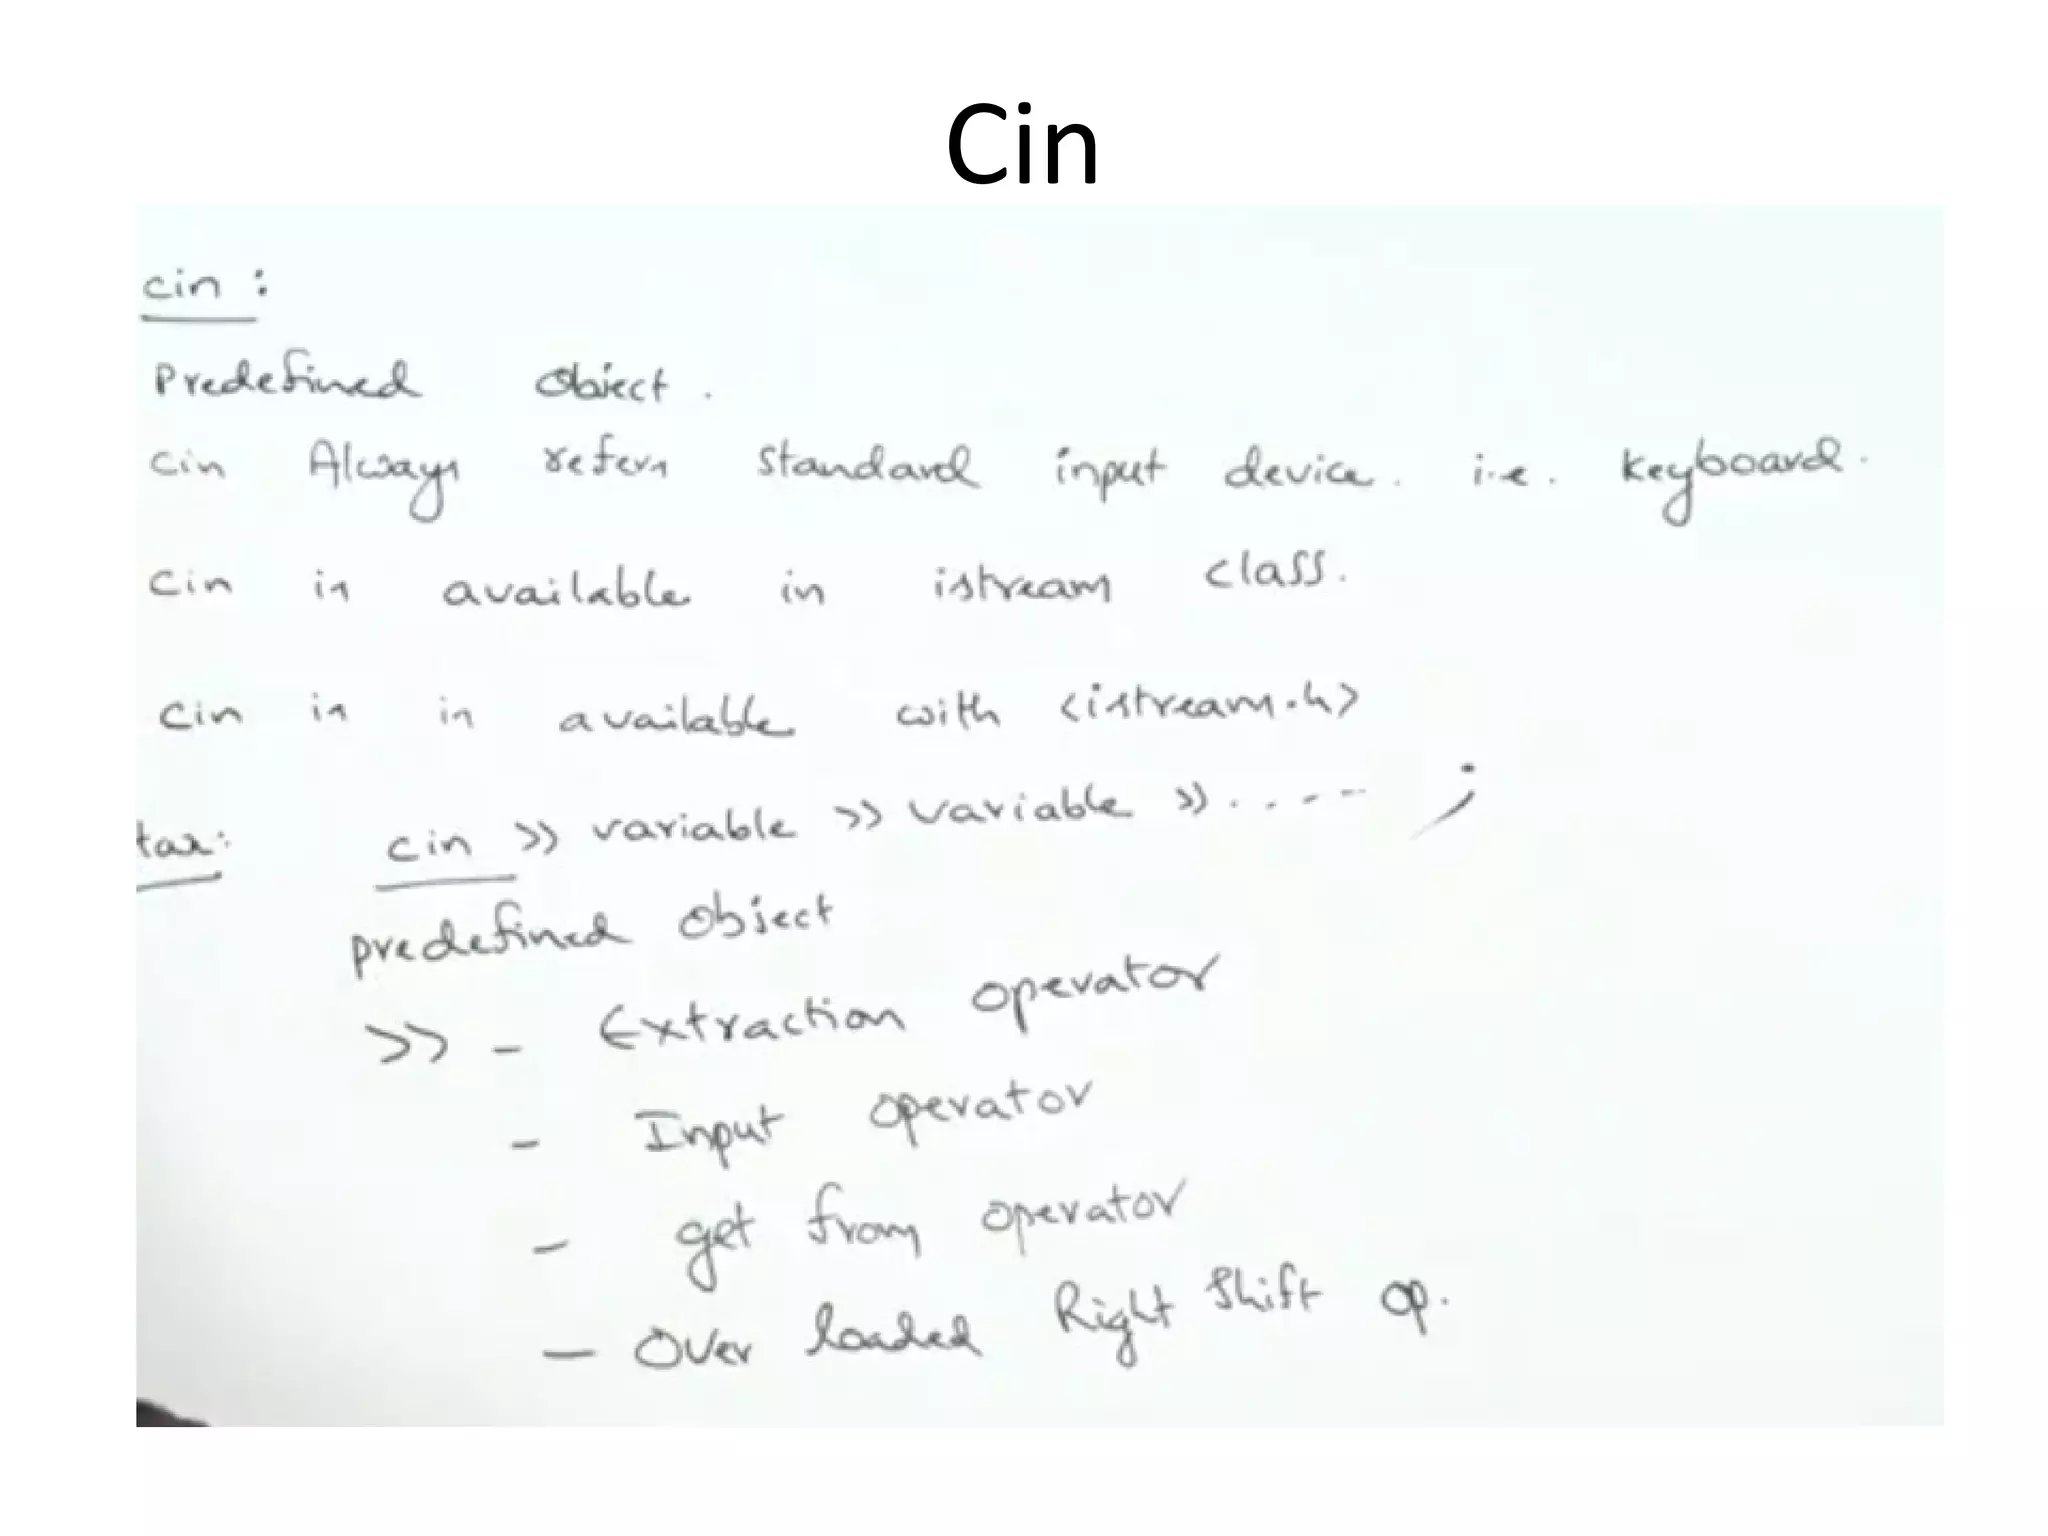 Cin
cin :
Predefined Object .
cin Always refers standard input device . i.e . keyboard .
Cin is available in istream class .
cin is in available with <istream.h>
tax: cin >> variable >> variable >> . . . - - ;
predefined Object
>> - Extraction operator
- Input operator
- get from operator
- Over loaded Right Shift op.